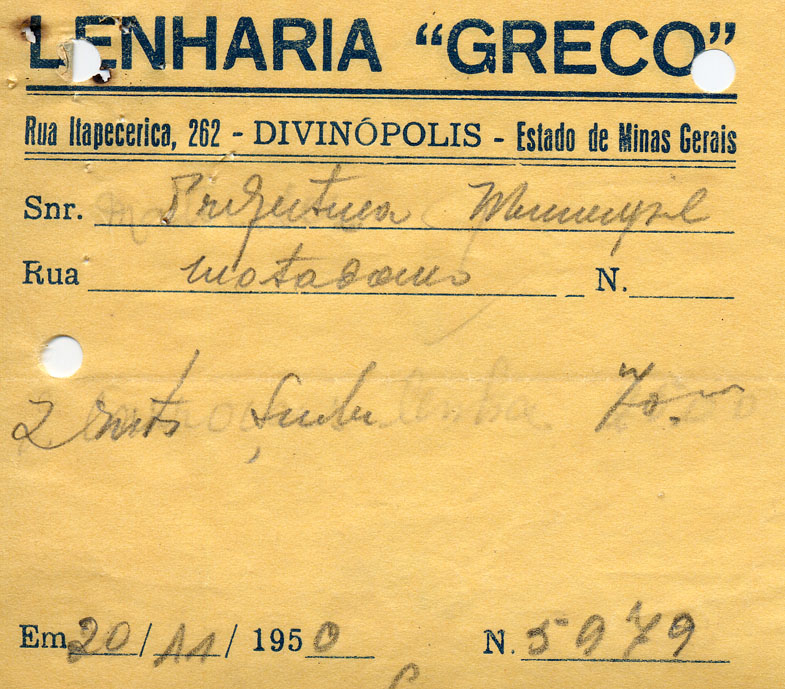 LENHARIA "GRECO"
Rua Itapecerica, 262 - DIVINÓPOLIS - Estado de Minas Gerais
Snr. Prefeitura Municipal
Rua matadouro N.
2 70,
Em 20/11/1950 N. 5979